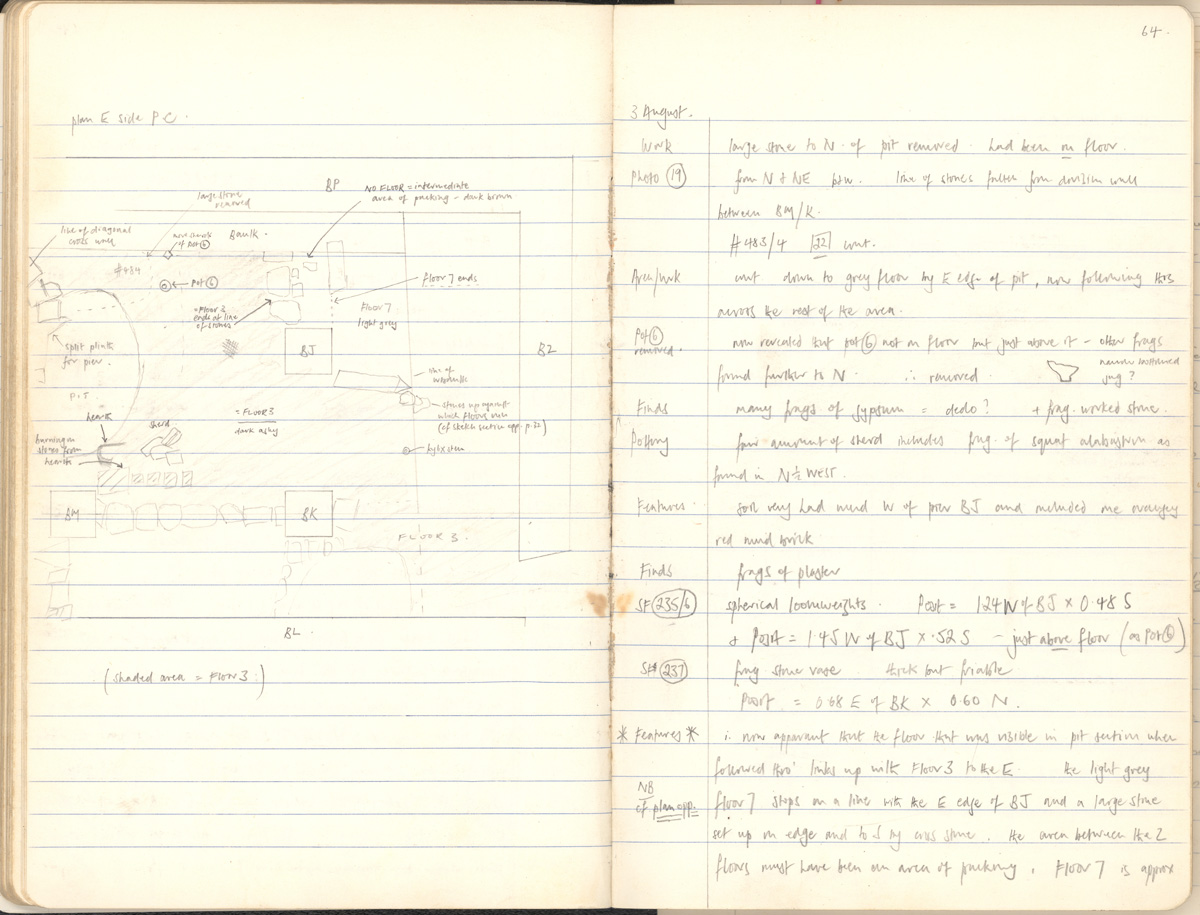 plan E side P C.
BP
large stone
removed
NO FLOOR = intermediate
area of packing - dark brown
line of diagonal
cross wall
more sherds
of Pot 6
Baulk.
#484
Pot 6
floor 7 ends
= FLOOR 3
ends at line
of stones
FLOOR 7
light grey
split plinth
for pier.
BJ
BZ
line of
PIT
stones up against
which floors run
(cf sketch section opp. p.22)
hearth
= FLOOR 3
dark ashy
sherd
burning on
stones from
hearth
BM
BK
FLOOR 3.
BL.
(shaded area = Floor 3)
64.
3 August.
Work large stone to N. of pit removed. Had been on floor.
Photo 19 from N + NE btw. line of stones fallen from division wall
between BM/K.
#483/4 22 cont.
Area/wk cont down to grey floor by E edge of pit, now following this
across the rest of the area.
Pot 6
removed. now revealed that pot 6 not on floor but just above it - other frags
found further to N. ∴ removed. narrow bottomed
jug?
Finds many frags of gypsum = dado? + frag. worked stone.
Pottery fair amount of sherd includes frag. of squat alabastron as
found in N½ WEST.
Features. soil very hard mud W of pier BJ and included one orangey
red mud brick
Finds frags of plaster
SF 235/6 spherical loomweights. Post = 1.24 W of BJ × 0.48 S
+ Post = 1.45 W of BJ × .52 S - just above floor (as Pot 6)
SF 237 frag stone vase thick but friable
Post = 0.68 E of BK × 0.60 N.
* Features * ∴ now apparant that the floor that was visible in pit section when
followed thro' links up with Floor 3 to the E. the light grey
NB
cf plan opp. floor 7 stops on a line with the E edge of BJ and a large stone
set up on edge and to S by cross stone. the area between the 2
floors must have been an area of packing. Floor 7 is approx